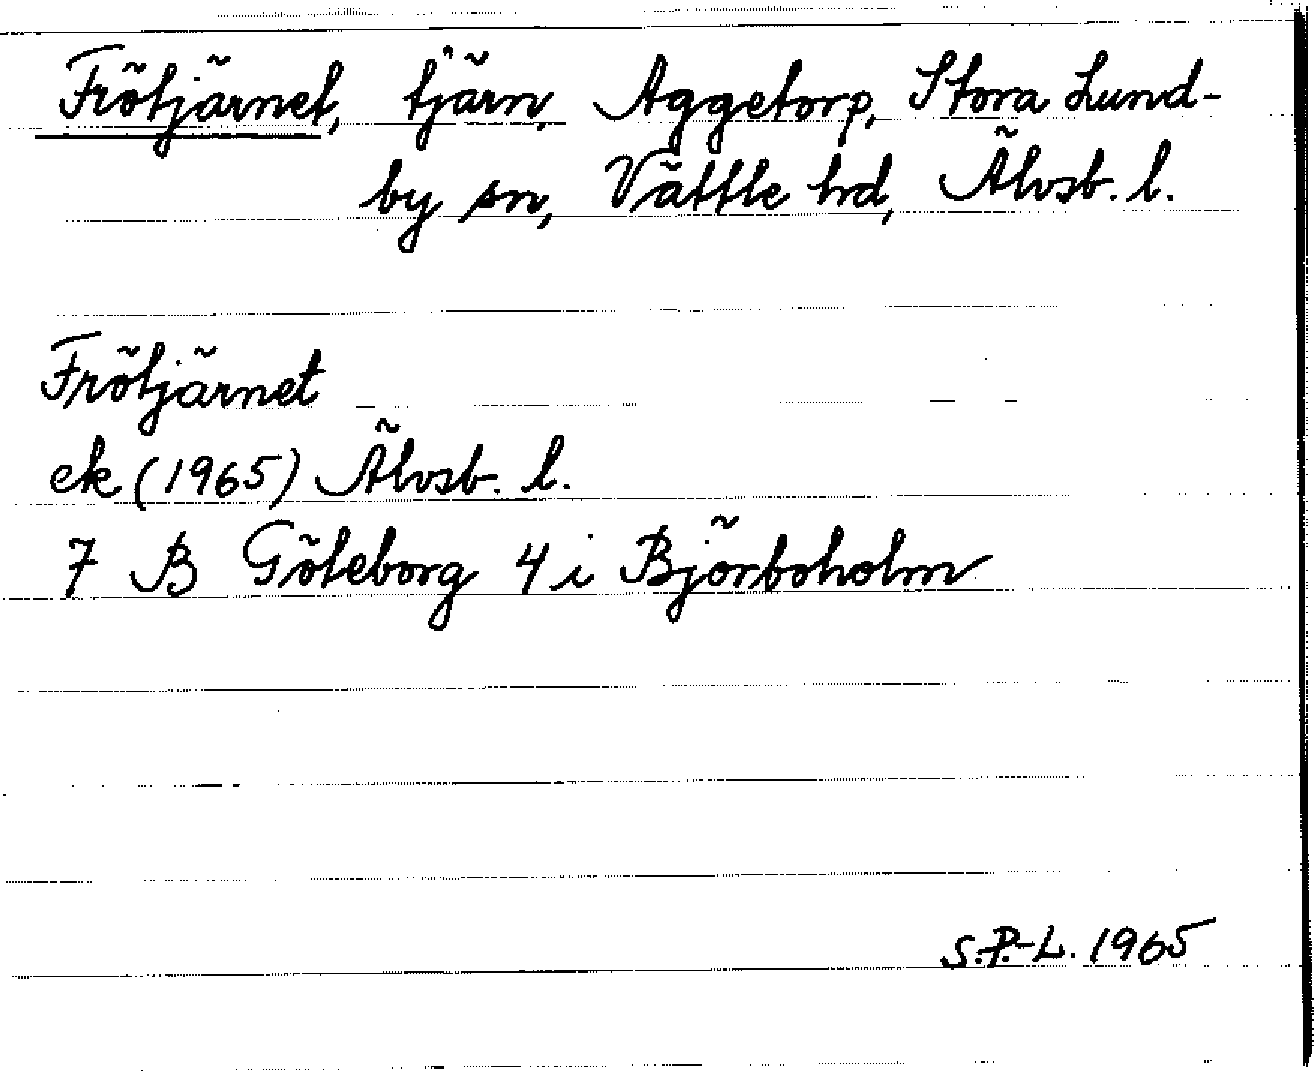 Frötjärnet, tjärn, Aggetorp, Stora Lund-
by sn, Vättle hd, Älvsb. l.
Frötjärnet
ek (1965) Älvsb. l.
7 B Göteborg 4 i Björboholm
S.P.-L. 1965